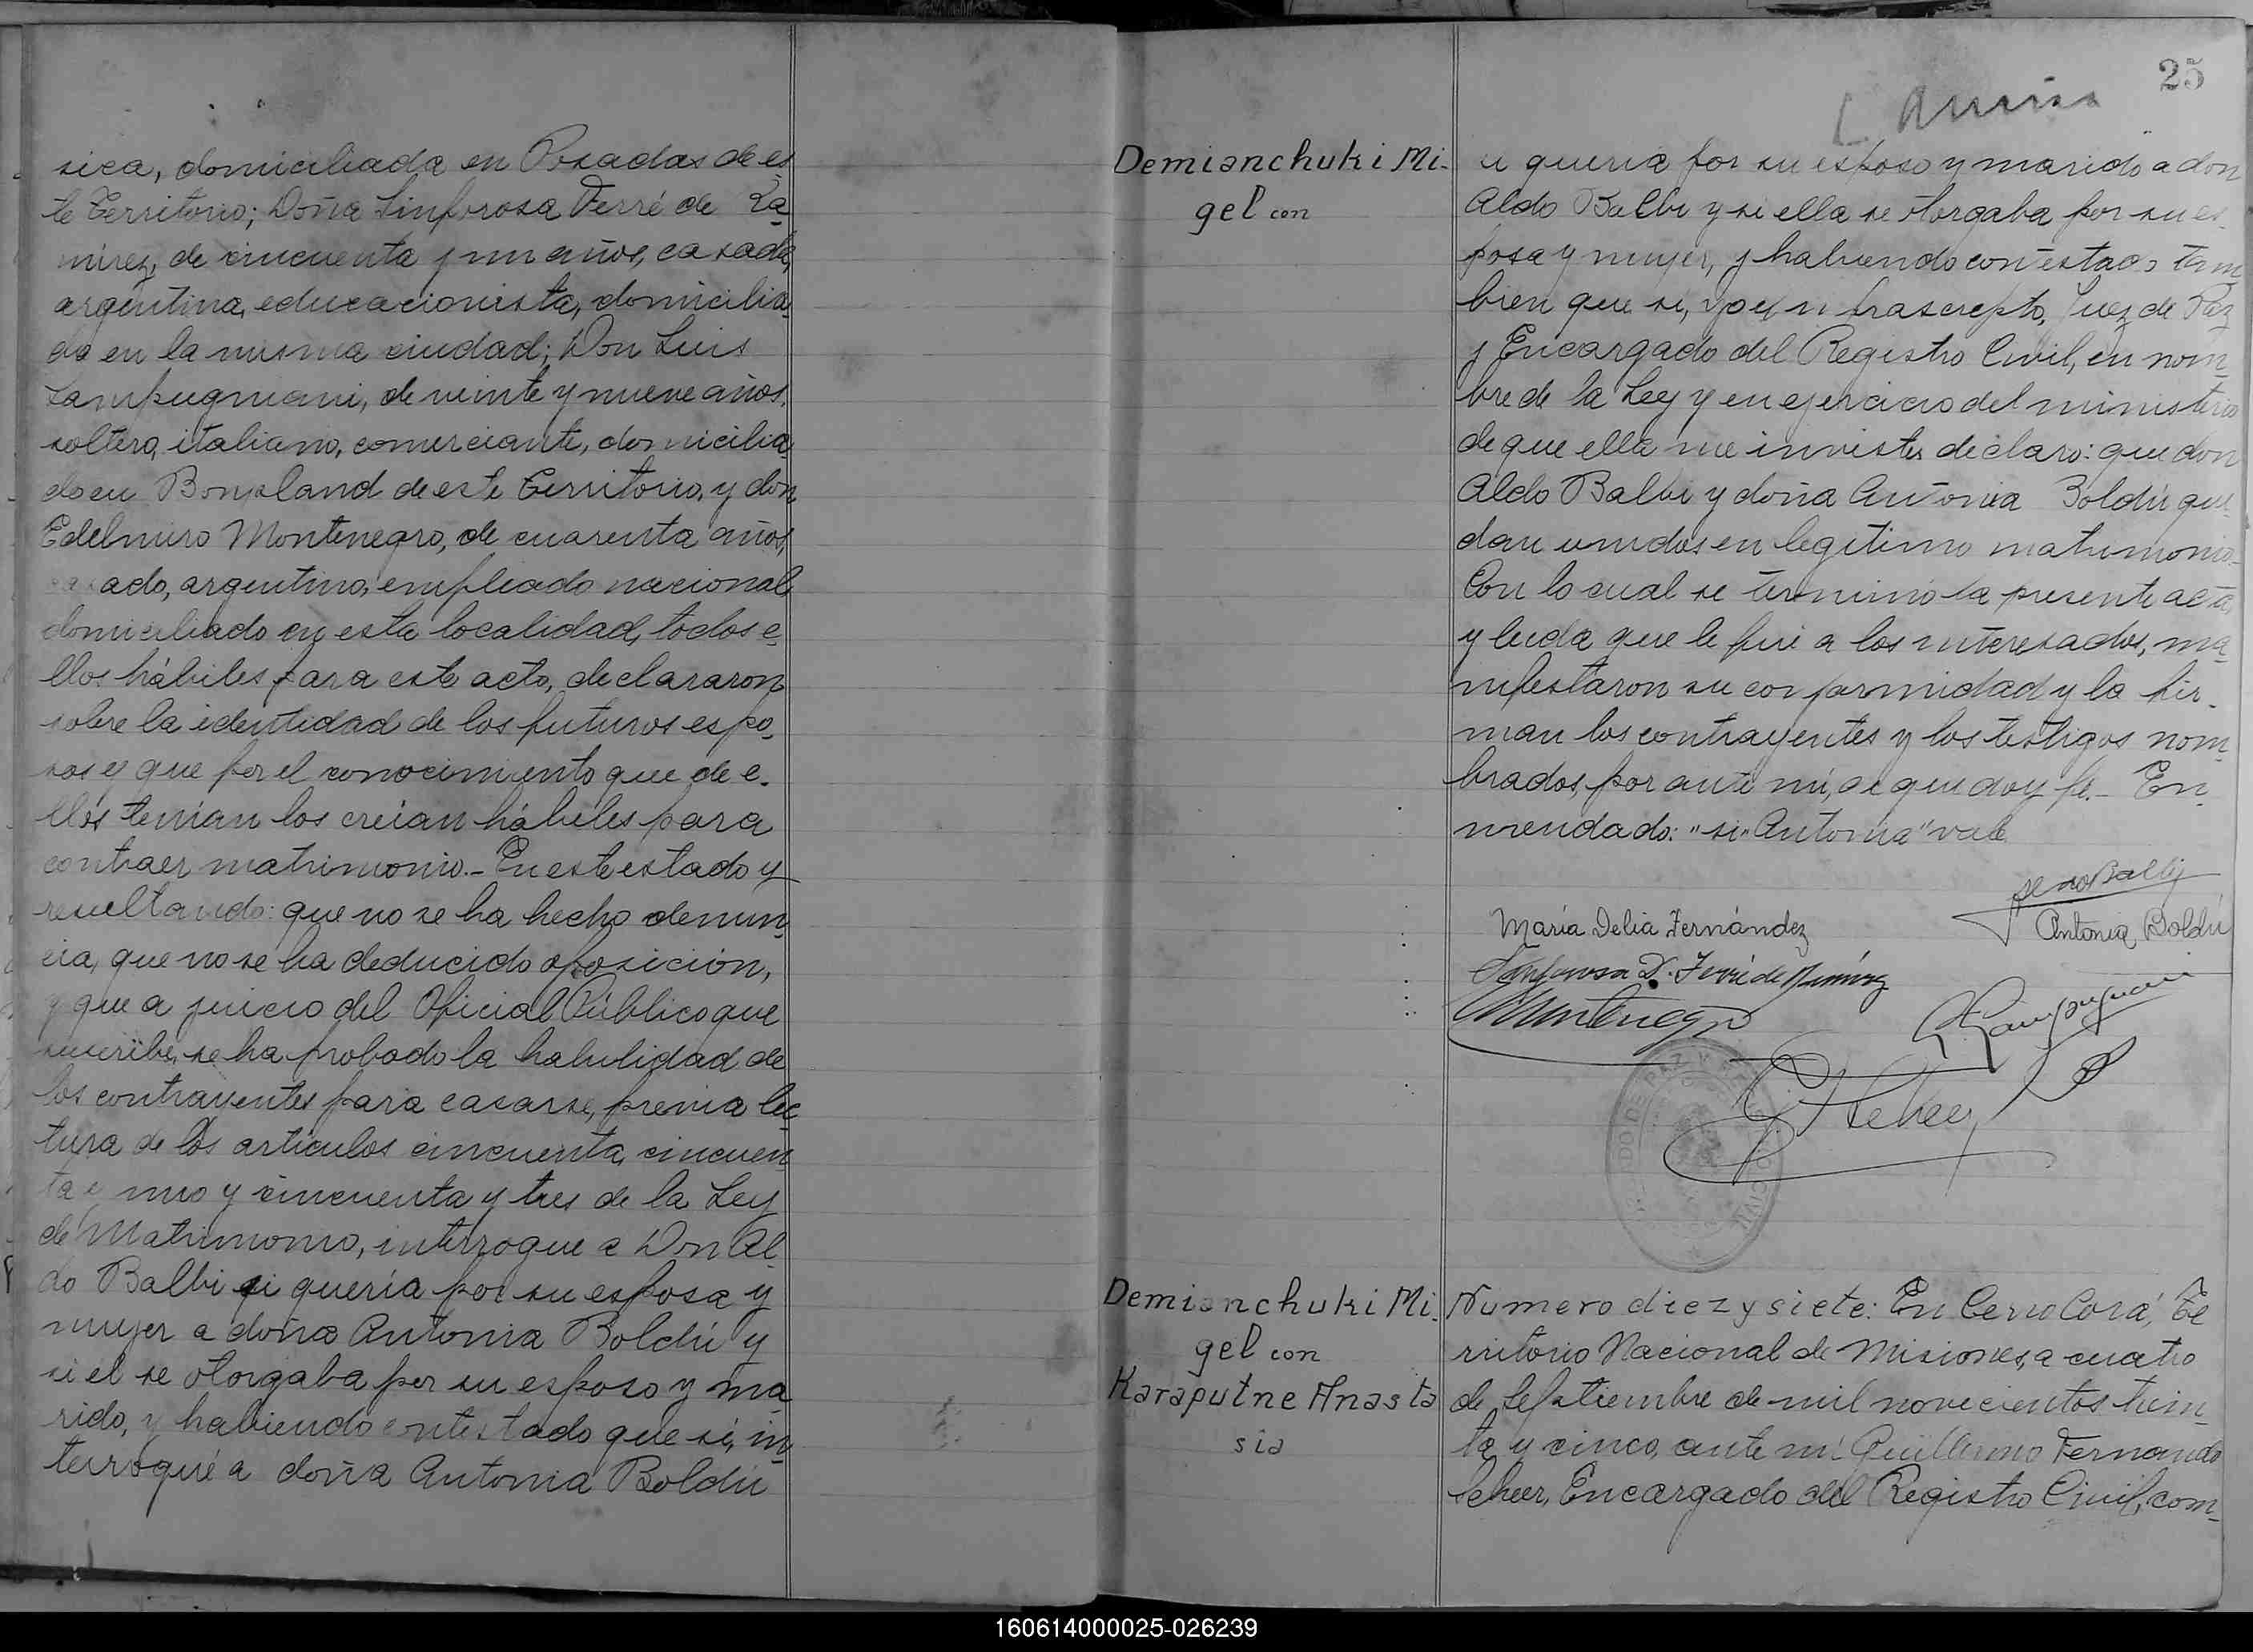 sica, domiciliada en Posadas de es
te Territorio; Doña Sinforosa Ferré de Ra
mirez, de cincuenta y un años, casada,
argentina, educacionista, domicilia
da en la misma ciudad; Don Luis
Lampugnani, de veinte y nueve años,
soltero, italiano, comerciante, domicilia
do en Bonpland de este Territorio, y don
Edelmiro Montenegro, de cuarenta años,
casado, argentino, empleado nacional
domiciliado en esta localidad, todos e
llos hábiles para este acto, declararon
sobre la identidad de los futuros espo
sos y que por el conocimiento que de e
llos tenían los creían hábiles para
contraer matrimonio.- En este estado y
resultando: que no se ha hecho denun
cia, que no se ha deducido oposición,
y que a juicio del Oficial Público que
suscribe, se ha probado la habilidad de
los contrayentes para casarse, previa lec
tura de los artículos cincuenta, cincuen
ta y uno y cincuenta y tres de la Ley
de Matrimonio, interrogue a Don Al
do Balbi si quería por su esposa y
mujer a doña Antonia Boldú y
si el se otorgaba por su esposo y ma
rido, y habiendo contestado que si, in
terrogué a doña Antonia Boldú
25
Demianchuki Mi-
gel con
si queria por su esposo y marido a don
Aldo Balbi y si ella se otorgaba por su es
posa y mujer, y habiendo contestado tam
bien que si, yo el infrascripto, Juez de Paz
y Encargado del Registro Civil, en nom
bre de la Ley y en ejercicio del ministerio
de que ella me inviste, declaro: que don
Aldo Balbi y doña Antonia Boldú que
dan unidos en legítimo matrimonio.
Con lo cual se terminó la presente acta
y leida que le fué a los interesados, ma
nifestaron su conformidad y la fir
man los contrayentes y los testigos nom
brados, por ante mí, de que doy fé.- En
mendado: "si" Antonia" vale
Balbi
María Delia Fernández
Antonia Boldú
Sinforosa D. Ferré de Ramírez
Montenegro
L. Lampugnani
G. F. Scheer
Demianchuki Mi-
gel con
Karaputne Anasta
sia
Numero diez y siete: En Cerro Corá, Te
rritorio Nacional de Misiones, a cuatro
de Septiembre de mil novecientos trein
ta y cinco, ante mí Guillermo Fernando
Scheer, Encargado del Registro Civil, com
160614000025-026239